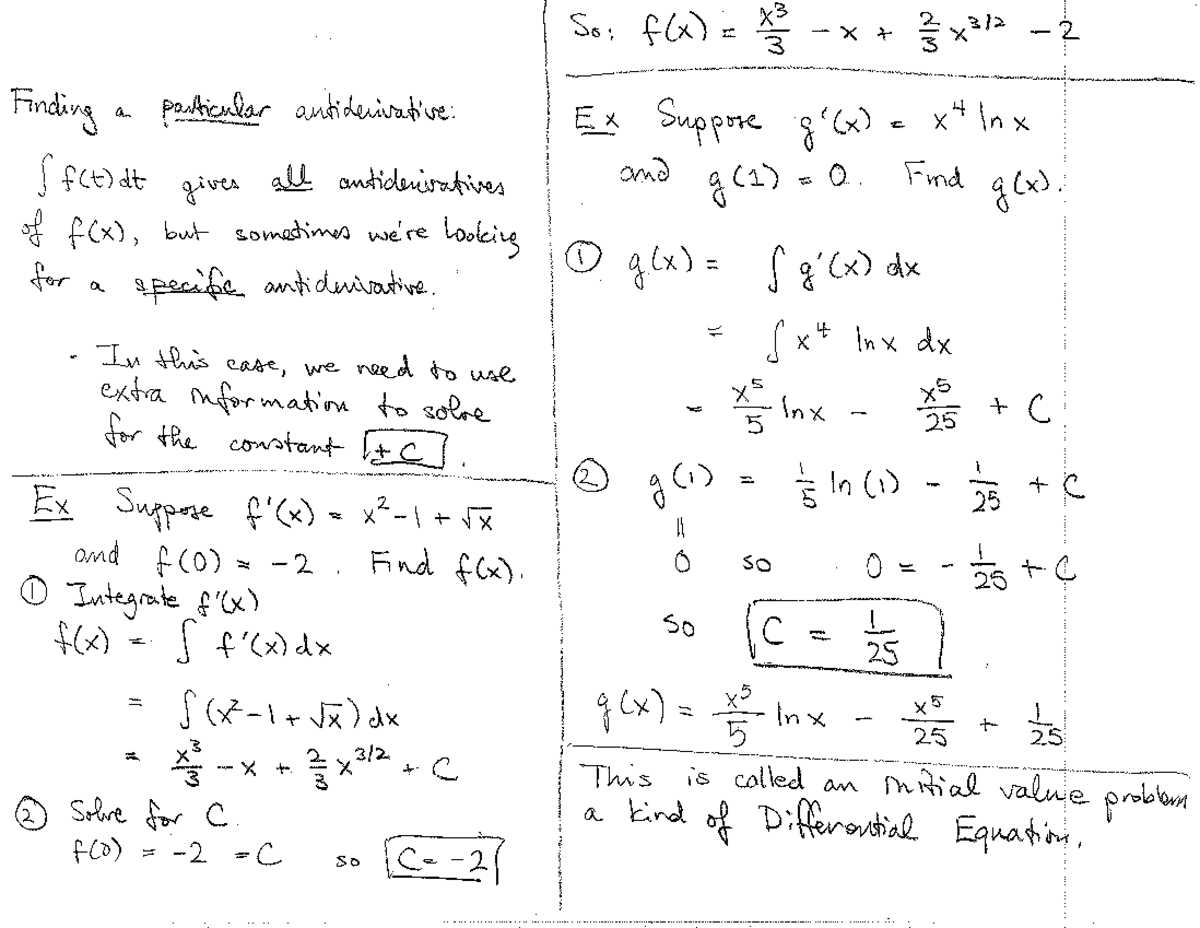 Finding a particular antiderivative:
∫ f(t) dt gives all antiderivatives
of f(x), but sometimes we're looking
for a specific antiderivative.
· In this case, we need to use
extra information to solve
for the constant + C.
Ex Suppose f'(x) = x² - 1 + √x
and f(0) = -2. Find f(x).
① Integrate f'(x)
f(x) = ∫ f'(x) dx
= ∫ (x² - 1 + √x) dx
= x³/3 - x + 2/3 x^(3/2) + C
② Solve for C.
f(0) = -2 = C so C = -2
So: f(x) = x³/3 - x + 2/3 x^(3/2) - 2
Ex Suppose g'(x) = x⁴ ln x
and g(1) = 0. Find g(x).
① g(x) = ∫ g'(x) dx
= ∫ x⁴ ln x dx
= x⁵/5 ln x - x⁵/25 + C
② g(1) = 1/5 ln(1) - 1/25 + C
||
0 so 0 = - 1/25 + C
so C = 1/25
g(x) = x⁵/5 ln x - x⁵/25 + 1/25
This is called an initial value problem
a kind of Differential Equation.